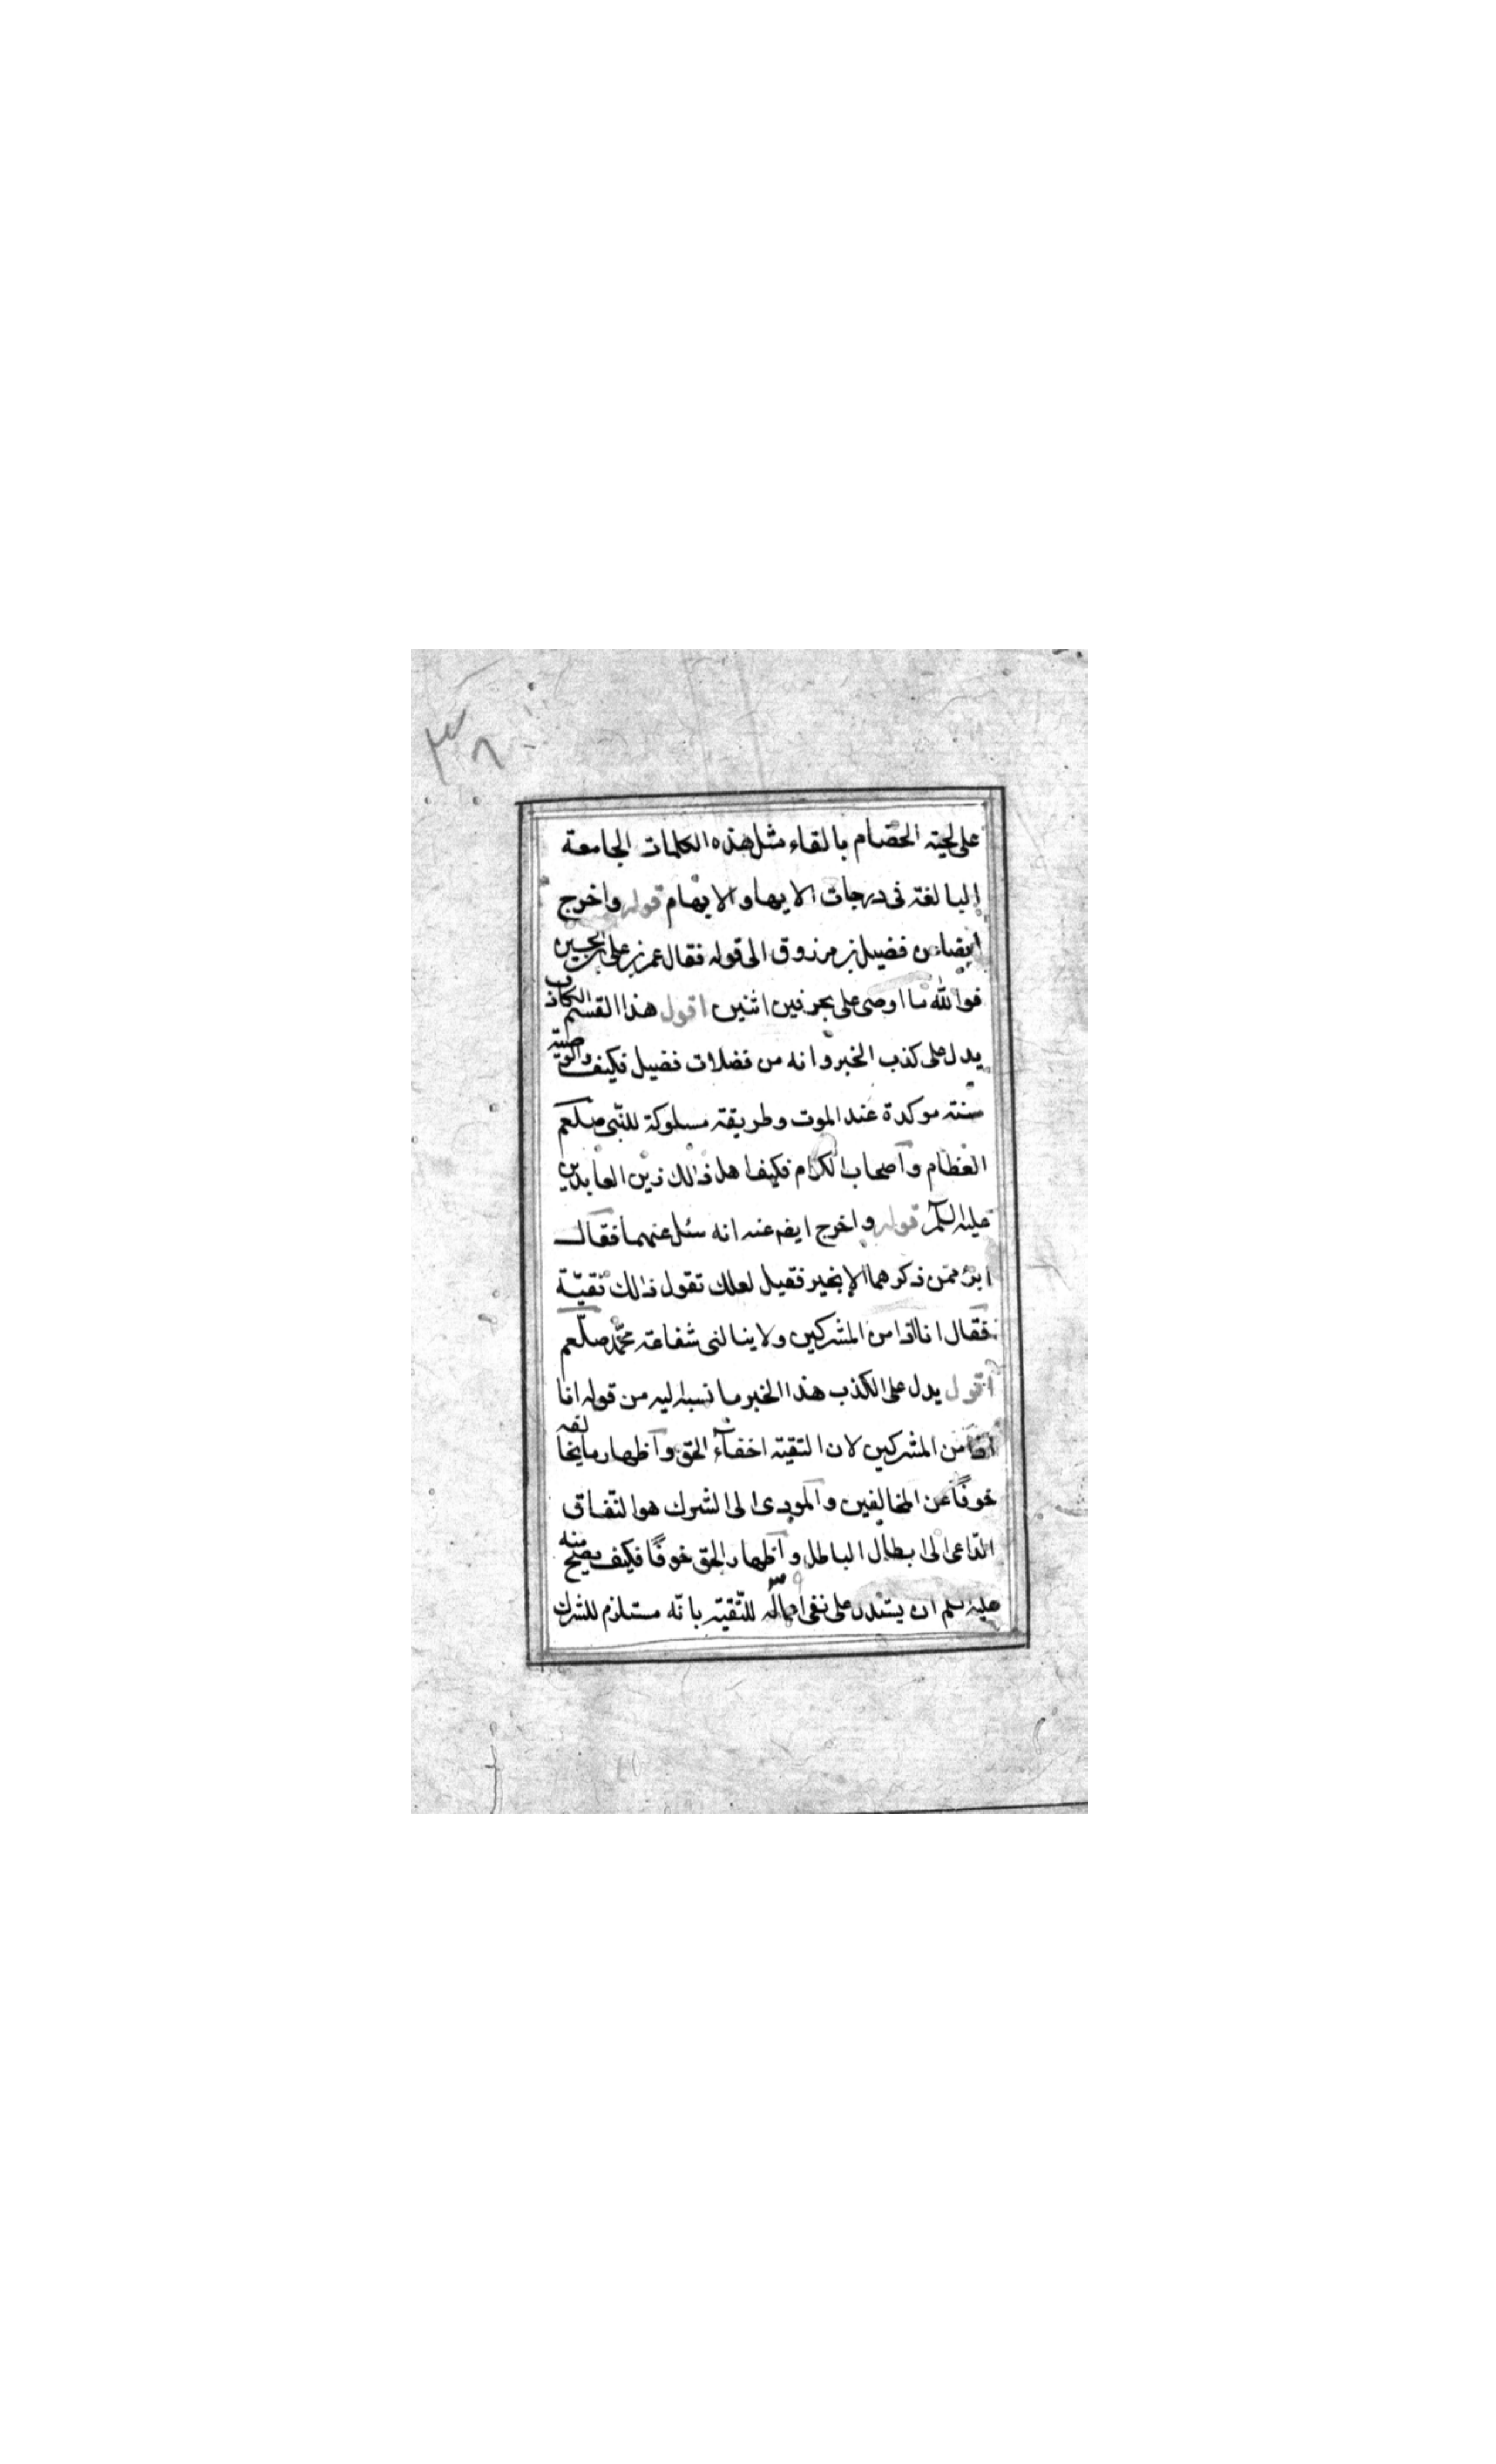 ٣٨
على لحية الخصام بالقاء مثل هذه الكلمات الجامعة
البالغة فى درجات الايهاو الايهام قوله واخرج
ايضا عن فضيل بن مرزوق الى قوله فقال عمر بن على بن الحسين
فوالله ما اوصى على بحرفين اثنين اقول هذا القسم الكاذب
يدل على كذب الخبر وانه من فضلات فضيل فكيف والوصية
سنة موكدة عند الموت وطريقة مسلوكة للنبى صلعم
العظام واصحاب الكرام فكيف اهل ذلك زين العابدين
عليه السلام قوله واخرج ايضا عنه انه سئل عنهما فقال
ابرء ممن ذكرهما الا بخير فقيل لعلك تقول ذلك تقيّة
فقال انا اذا من المشركين ولا ينالنى شفاعة محمّد صلّعم
اقول يدل على الكذب هذا الخبر ما نسبه اليه من قوله انا
اذا من المشركين لان التقية اخفآء الحق واظهار ما يخالفه
خوفًا عن المخالفين والمودى الى الشرك هو النّفاق
الدّاعى الى ابطال الباطل واظهار الحق خوفًا فكيف يصح منه
عليه السلم ان يستدل على نفى للتّقية بانّه مستلزم للشرك